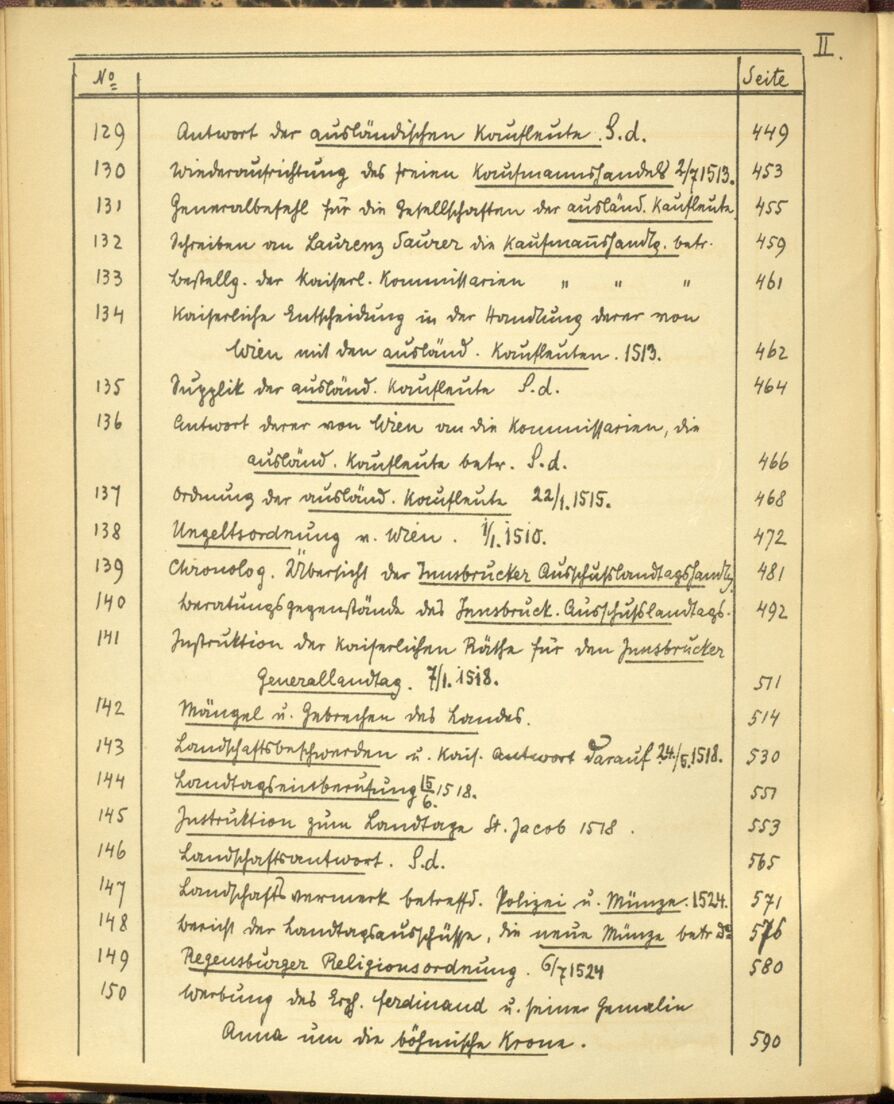 II.
No Seite
129 Antwort der ausländischen Kaufleute. S.d. 449
130 Wiederaufrichtung des freien Kaufmannshandels 2/7 1513. 453
131 Generalbefehl für die Gesellschaften der ausländ. Kaufleute. 455
132 Schreiben an Laurenz Saurer die Kaufmañshandlg. betr. 459
133 Bestellg. der Kaiserl. Kommissarien " " " 461
134 Kaiserliche Entscheidung in der Handlung derer von
Wien mit den ausländ. Kaufleuten. 1513. 462
135 Supplik der ausländ. Kaufleute S.d. 464
136 Antwort derer von Wien an die Kommissarien, die
ausländ. Kaufleute betr. S.d. 466
137 Ordnung der ausländ. Kaufleute 22/1. 1515. 468
138 Ungeltsordnung v. Wien. 1/1. 1510. 472
139 Chronolog. Übersicht der Innsbrucker Ausschußlandtagshandlg. 481
140 Beratungsgegenstände des Innsbruck. Ausschußlandtags. 492
141 Instruktion der Kaiserlichen Räthe für den Innsbrucker
Generallandtag. 7/1. 1518. 511
142 Mängel u. Gebrechen des Landes. 514
143 Landschaftsbeschwerden u. Kais. Antwort darauf 24./5. 1518. 530
144 Landtagseinberufung 15/6. 1518. 551
145 Instruktion zum Landtage St. Jacob 1518. 553
146 Landschaftsantwort. S.d. 565
147 Landschaftsvermerk betreffd. Polizei u. Münze. 1524. 571
148 Bericht der Landtagsausschüsse, die neue Münze betr. do 576
149 Regensburger Religionsordnung. 6/7 1524 580
150 Werbung des Erzh. Ferdinand u. seiner Gemalin
Anna um die böhmische Krone. 590